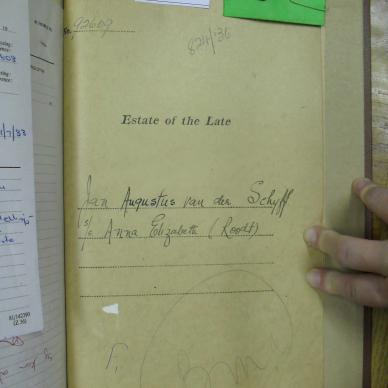 No. 92609
824/36
Estate of the Late
Jan Augustus van der Schyff
s/s Anna Elizabeth (Roodt)
81/142390
(Z 36)